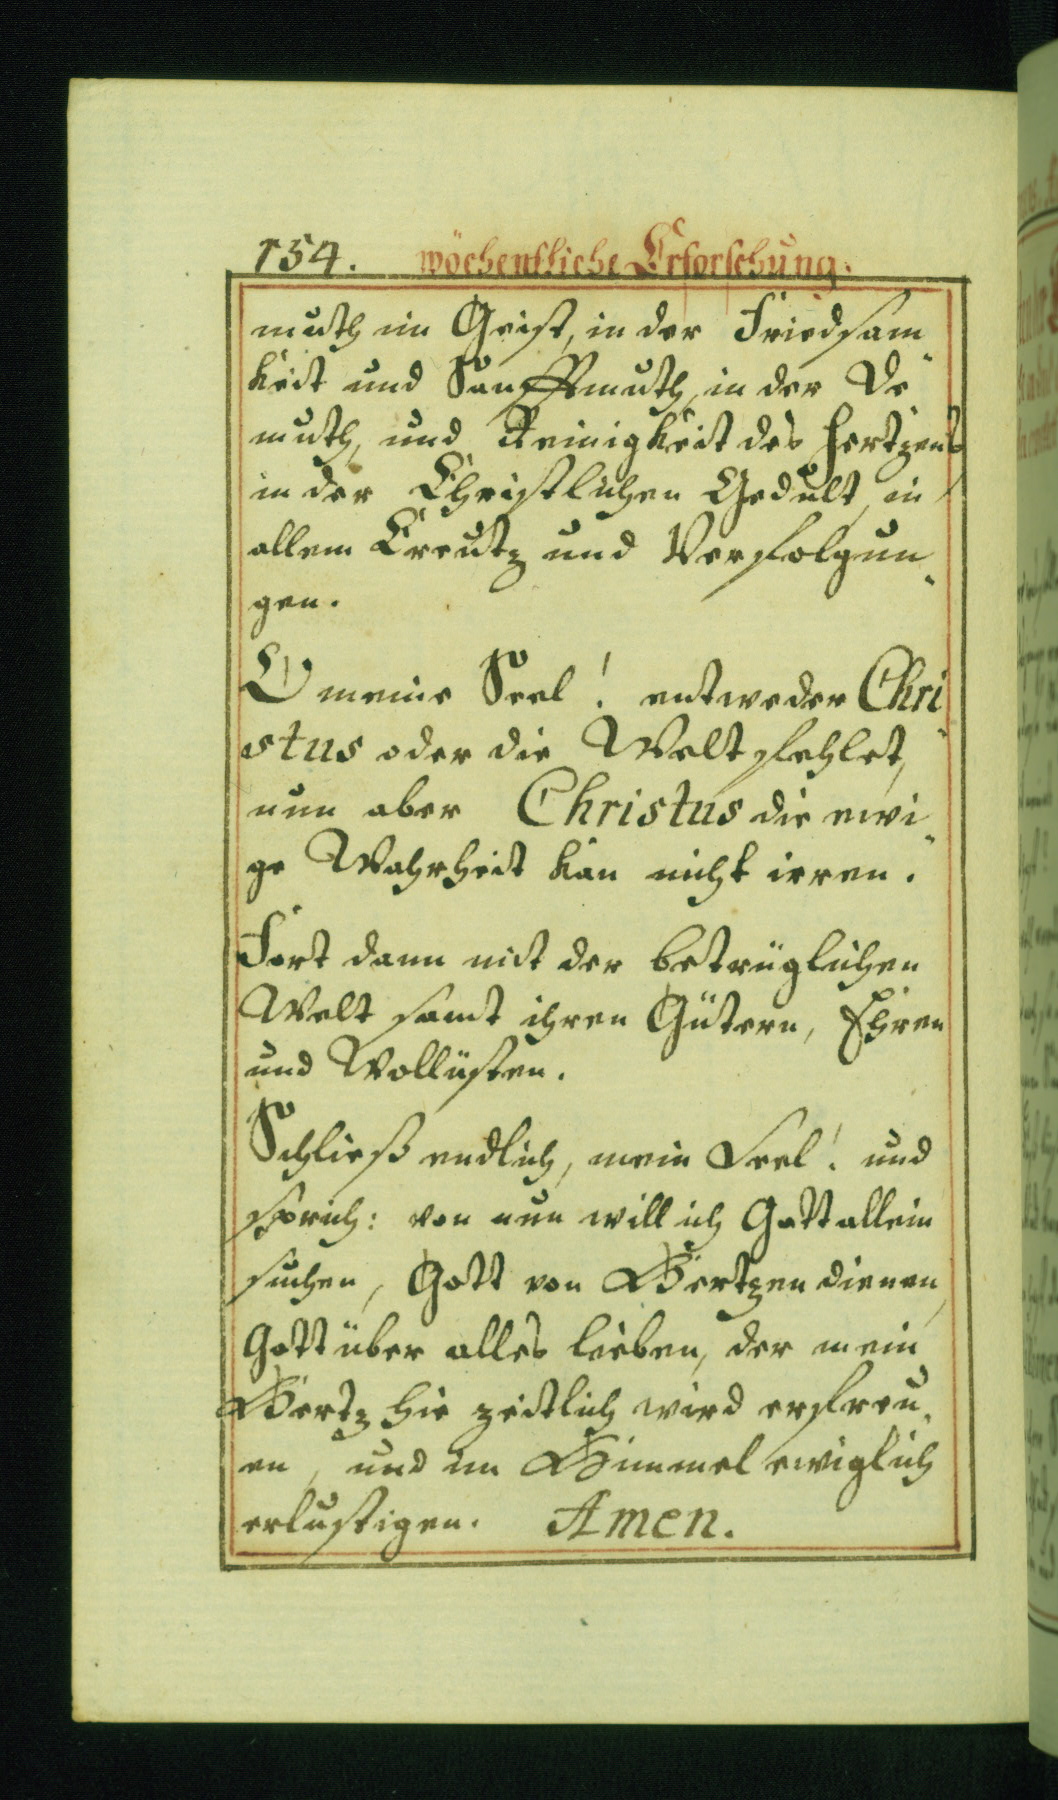 154. wöchentliche Erforschung.
muth im Geist, in der Friedsam-
keit und Sanfftmuth, in der De-
muth, und Reinigkeit des Hertzens
in der Christlichen Gedult, in
allem Creutz und Verfolgun-
gen.
O meine Seel! entweder Chri-
stus oder die Welt fehlet,
nun aber Christus die ewi-
ge Wahrheit kan nicht irren.
Fort dann mit der betrüglichen
Welt samt ihren Gütern, Ehren
und Wollüsten.
Schließ endlich, mein Seel! und
sprich: von nun will ich Gott allein
suchen, Gott von Hertzen dienen,
Gott über alles lieben, der mein
Hertz hie zeitlich wird erfreu-
en, und im Himmel ewiglich
erlustigen. Amen.